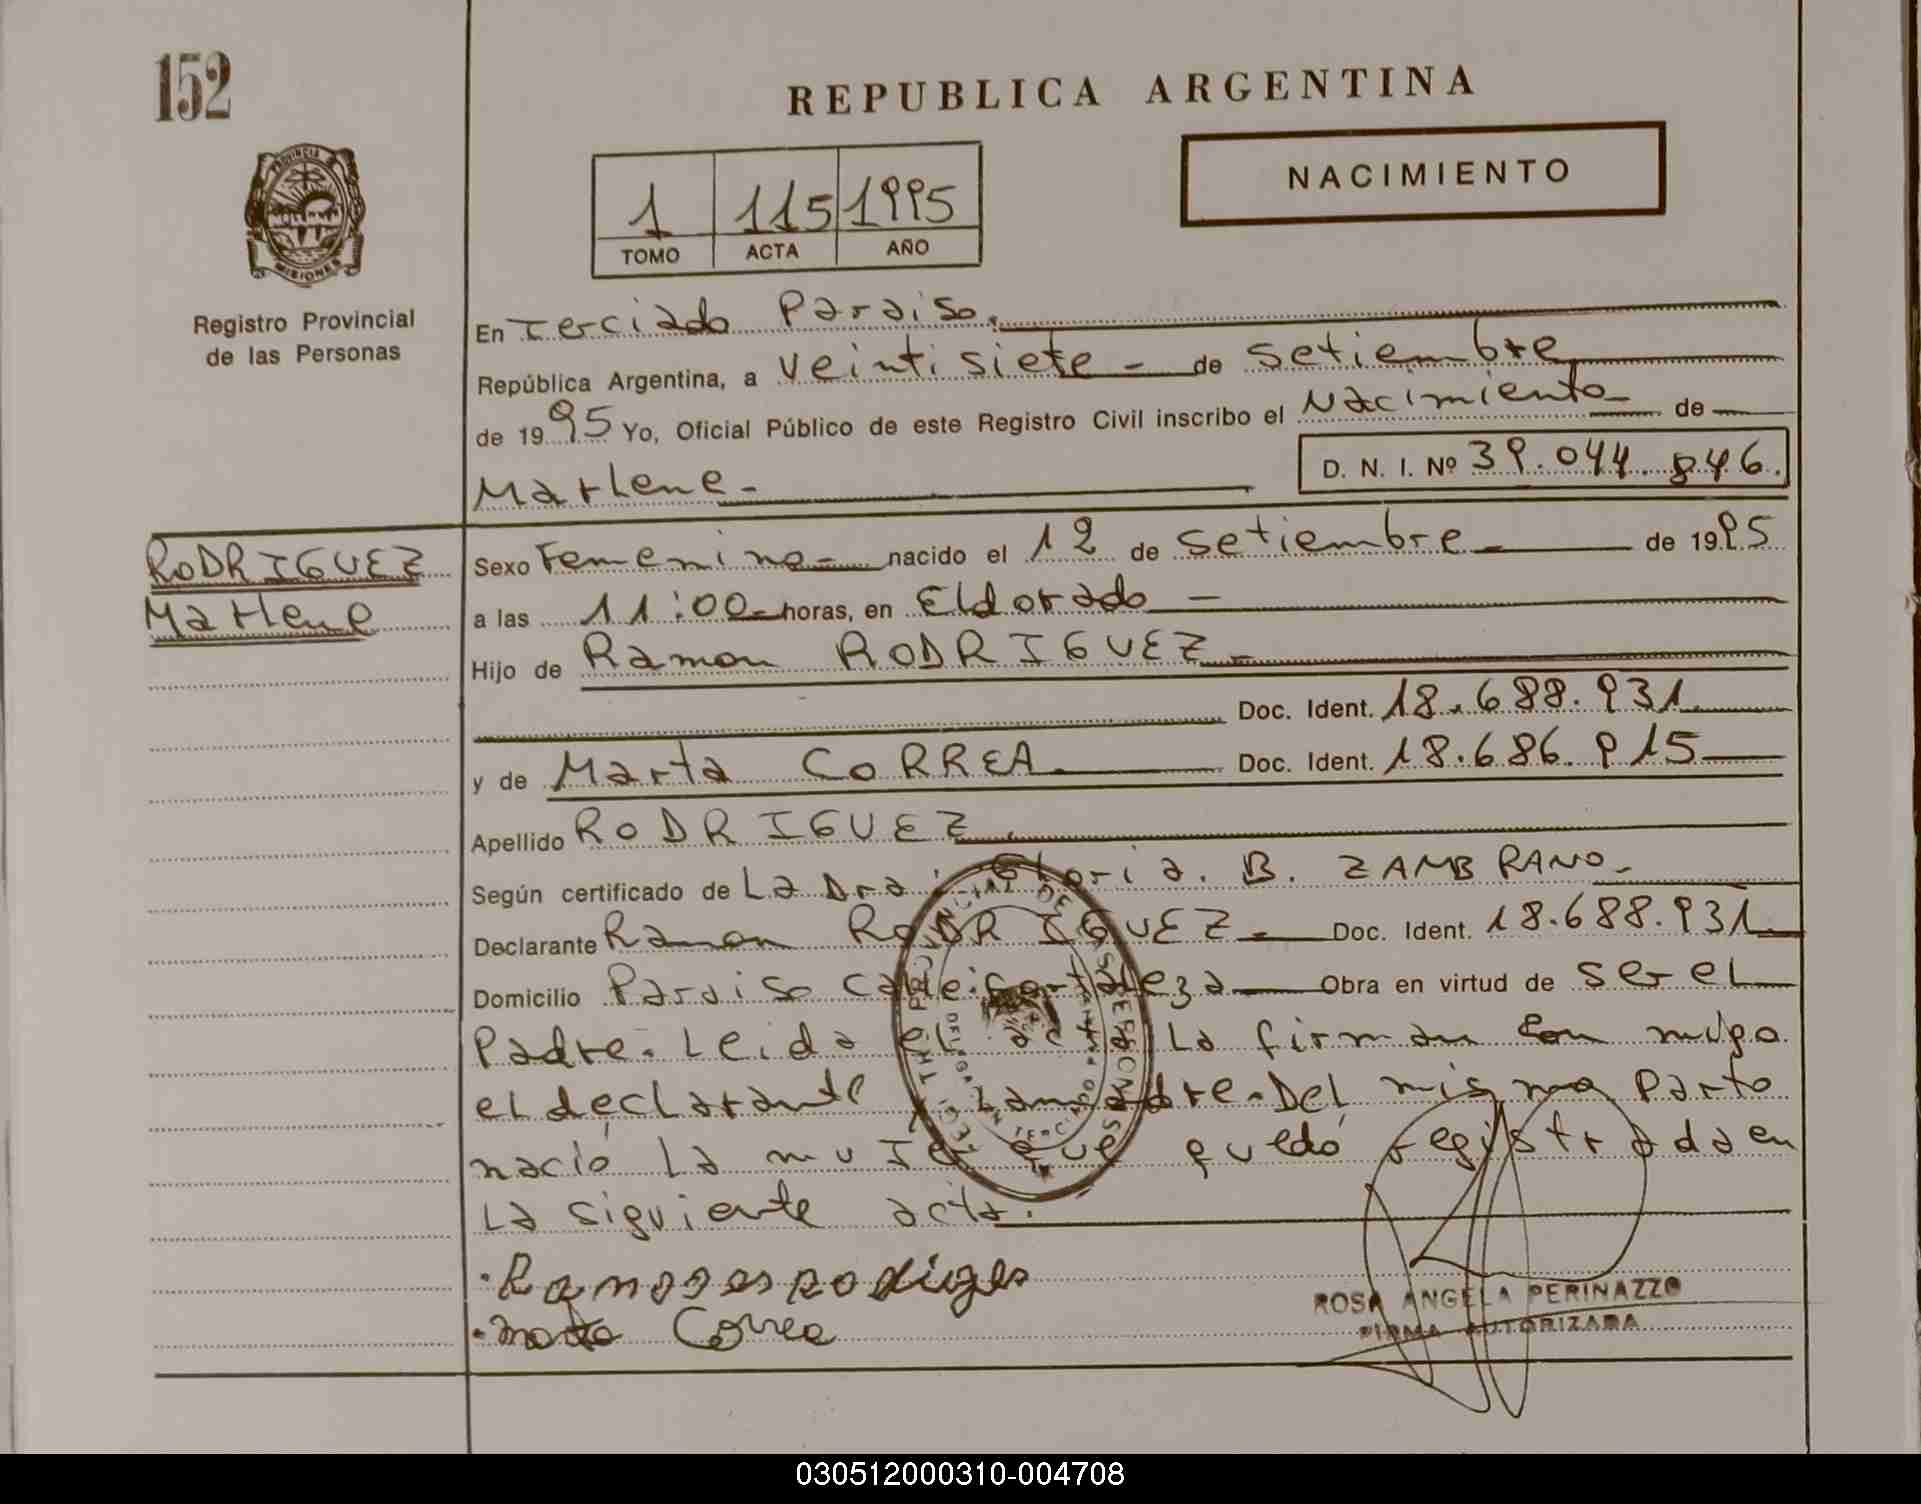 152
REPUBLICA ARGENTINA
NACIMIENTO
PROVINCIA DE
MISIONES
Registro Provincial
de las Personas
1 115 1995
TOMO ACTA AÑO
En Terciado Paraiso.
República Argentina, a veintisiete - de setiembre
de 1995 Yo, Oficial Público de este Registro Civil inscribo el Nacimiento de
Marlene - D. N. I. Nº 39.044.846.
RODRIGUEZ
Marlene
Sexo Femenino nacido el 12 de setiembre - de 1995
a las 11:00 horas, en Eldorado -
Hijo de Ramon RODRIGUEZ -
Doc. Ident. 18.688.931
y de Marta CORREA Doc. Ident. 18.686.915
Apellido RODRIGUEZ.
Según certificado de La Dra: Gloria. B. ZAMBRANO.
Declarante Ramon RODRIGUEZ - Doc. Ident. 18.688.931
Domicilio Paraiso calle: Fortaleza Obra en virtud de ser el
Padre. Leida el acta La firman con migo
el declarante y La madre. Del mismo Parto
nació La mujer que quedó registrada en
La siguiente acta.
Marta Correa
ROSA ANGELA PERINAZZO
FIRMA AUTORIZADA
030512000310-004708